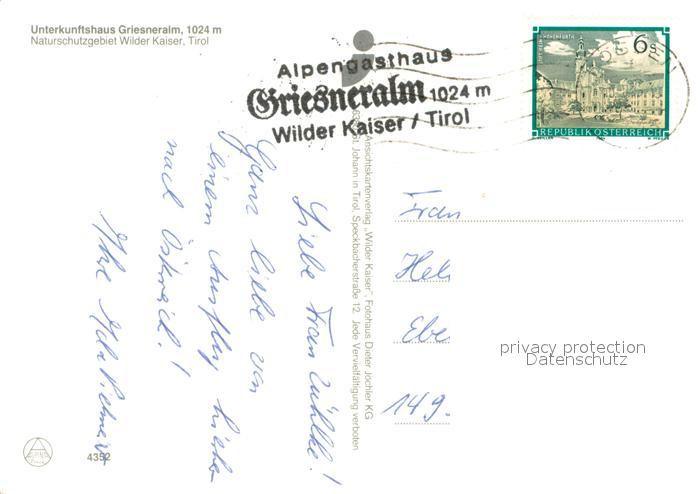 Unterkunftshaus Griesneralm, 1024 m
Naturschutzgebiet Wilder Kaiser, Tirol
Alpengasthaus
Griesneralm 1024 m
Wilder Kaiser / Tirol
6 s
REPUBLIK ÖSTERREICH
Ansichtskartenverlag „Wilder Kaiser", Fotohaus Dieter Jöchler KG
St. Johann in Tirol, Speckbacherstraße 12. Jede Vervielfältigung verboten
Liebe Frau Zühlke!
Ganz liebe von
einem Ausflug
nach Österreich!
Ihre
Frau
Hel
Ebe
149.
privacy protection
Datenschutz
4352